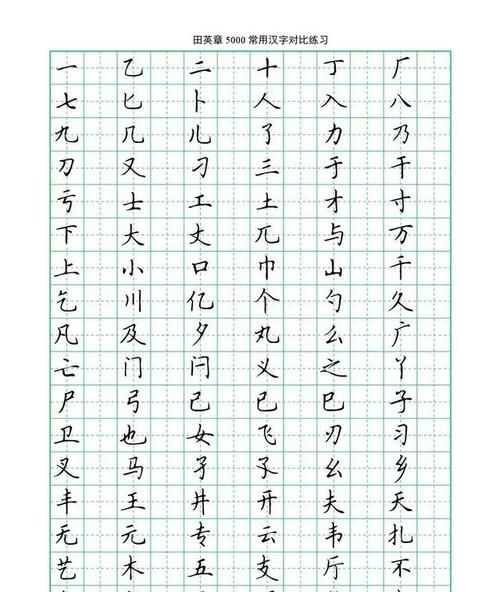 田英章 5000 常用汉字对比练习
一 乙 二 十 丁 厂
七 匕 卜 人 入 八
九 几 儿 了 力 乃
刀 又 刁 三 于 干
亏 士 工 土 才 寸
下 大 丈 兀 与 万
上 小 口 巾 山 千
乞 川 亿 个 勺 久
凡 及 夕 丸 么 广
亡 门 闩 义 之 丫
尸 弓 己 已 巳 子
卫 也 女 飞 刃 习
叉 马 孑 孓 幺 乡
丰 王 井 开 夫 天
无 元 专 云 韦 扎
艺 木 五 支 厅 不